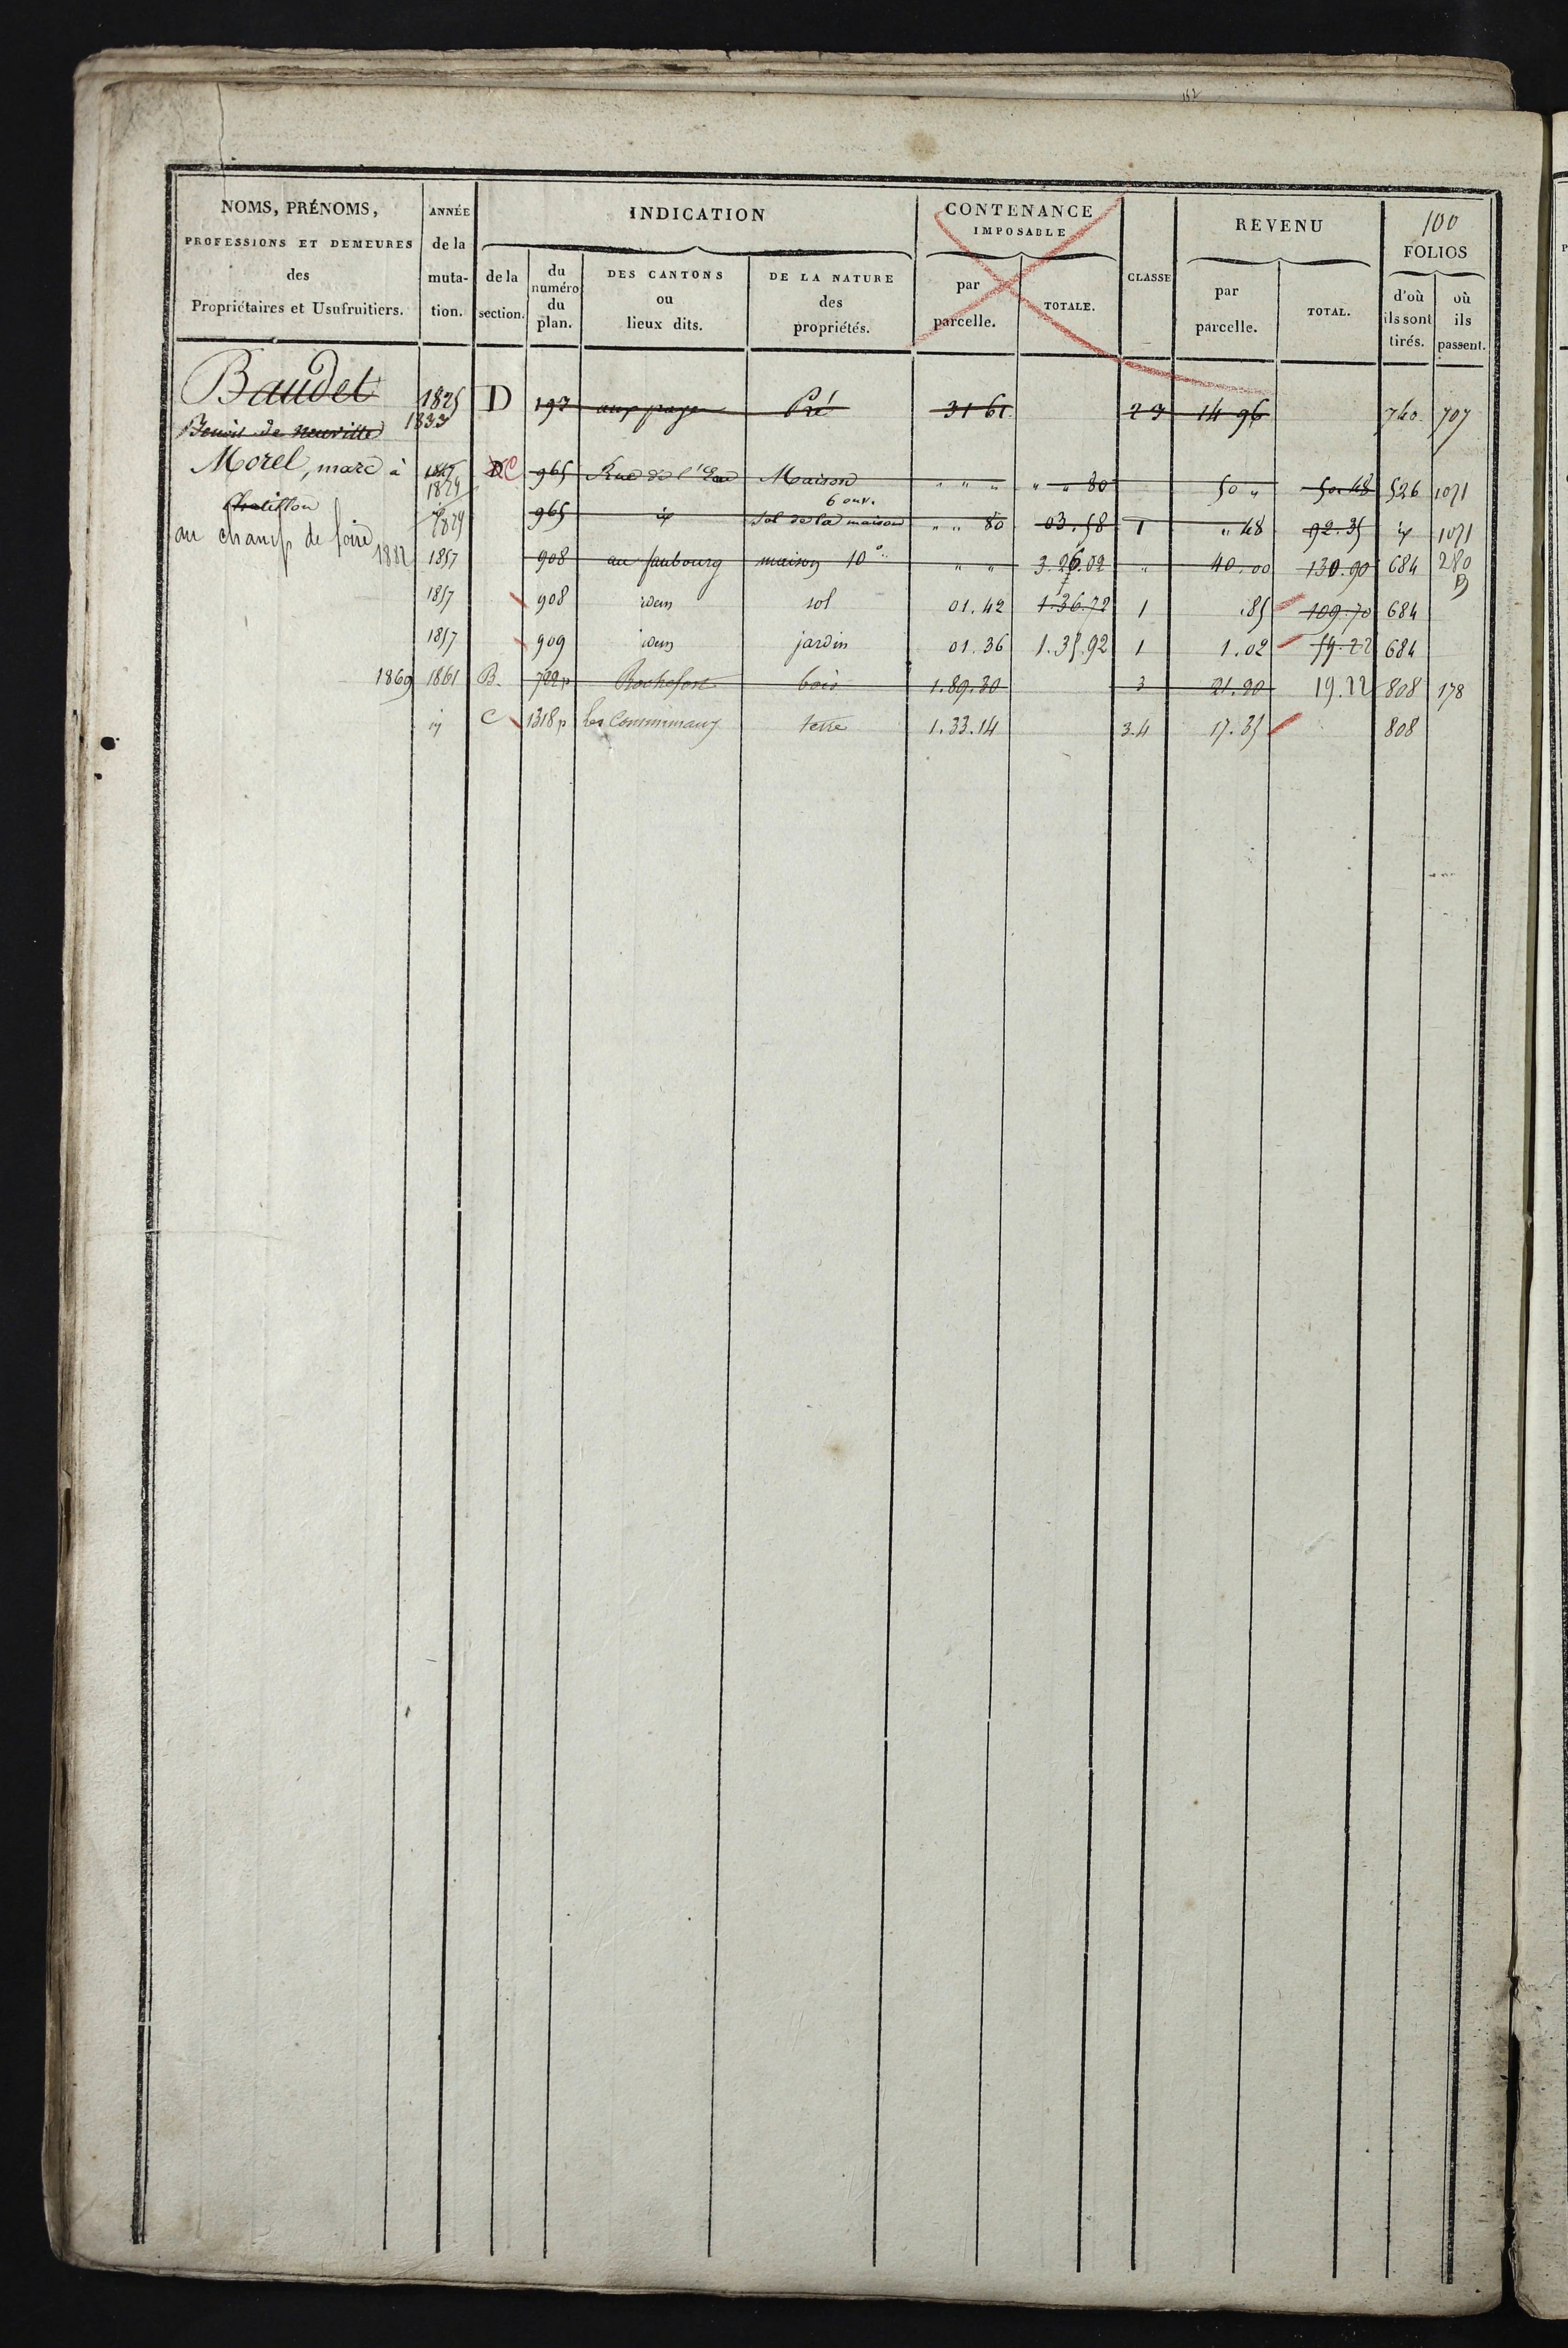 152
100
NOMS, PRÉNOMS,
PROFESSIONS ET DEMEURES
des
Propriétaires et Usufruitiers.
ANNÉE
de la
muta-
tion.
INDICATION
de la
section.
du
numéro
du
plan.
DES CANTONS
ou
lieux dits.
DE LA NATURE
des
propriétés.
CONTENANCE
IMPOSABLE
par
parcelle.
TOTALE.
CLASSE
REVENU
par
parcelle.
TOTAL.
FOLIOS
d'où
ils sont
tirés.
où
ils
passent.
Baudet 1825 D 193 Pré 31 61 2 3 14 96 740 707
Benoit de Neuville 1833
Morel, marc à 1829 C 965 Rue de l'Eau Maison " " " " " 80 50 " 50.48 526 1071
Chatillon 1829 965 id 6 ouv. Sol de la maison " " 80 03.58 1 " 48 92.35 id 1071
au champ de foire
1882 1857 908 au faubourg maison 10 " " 3.26.02 " 40.00 130.90 684 280
1857 908 idem sol 01.42 1.36.72 1 .85 109.70 684
1857 909 idem jardin 01.36 1.35.92 1 1.02 684
1869 1861 B. 722p Rochefort bois 1.89.30 3 21.90 19.22 808 178
id C 1318p les Communaux terre 1.33.14 3.4 17.35 808